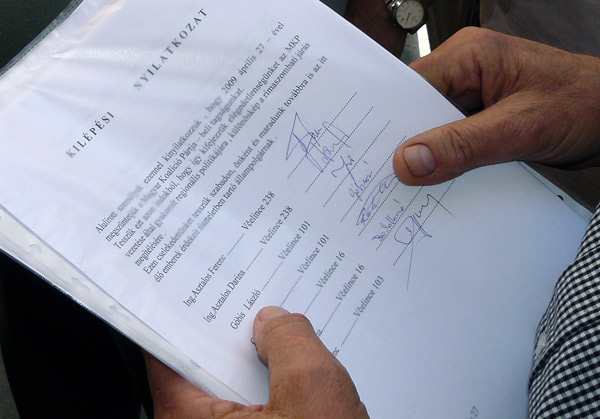 KILÉPÉSI NYILATKOZAT
Alulírott ezennel kinyilatkozzuk, hogy 2009 április 27 - ével
megszűntetjük a Magyar Koalíció Pártja – beli tagságunkat.
Teszük ezt azon indokból, hogy így kifejezzük elégedetlenségünket az MKP
vezetése által gyakorolt regionális politikájára, különösképp a rimaszombati járás
megítélésére.
Ezen cselekedetünket tesszük szabadon, önként és maradunk továbbra is az itt
élő emberek érdekeit tiszteletben tartó állampolgárnak.
Ing Asztalos Ferenc ------ Včelince 238
Ing Asztalos Darina ------ Včelince 238
Góbis László ------ Včelince 101
Včelince 101
Včelince 16
Včelince 16
Včelince 103